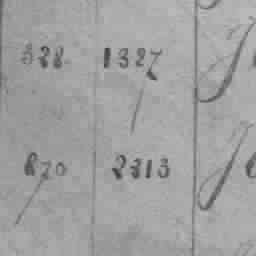 328 1327 J
870 2313 J